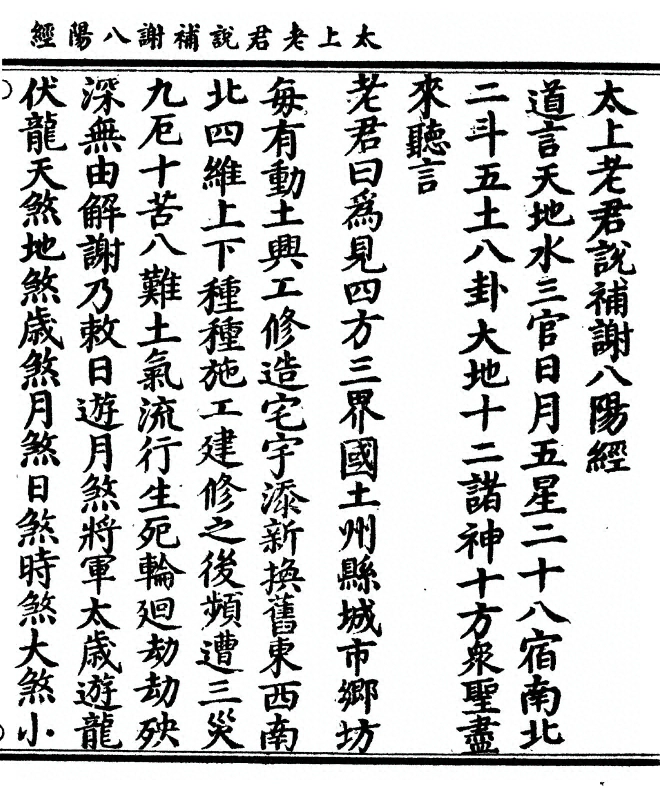 太上老君說補謝八陽經
太上老君說補謝八陽經
道言天地水三官日月五星二十八宿南北
二斗五土八卦大地十二諸神十方衆聖盡
來聽言
老君曰為見四方三界國土州縣城市鄉坊
每有動土興工修造宅宇添新換舊東西南
北四維上下種種施工建修之後頻遭三災
九厄十苦八難土氣流行生死輪廻劫劫殃
深無由解謝乃敕日遊月煞將軍太歲遊龍
伏龍天煞地煞歲煞月煞日煞時煞大煞小